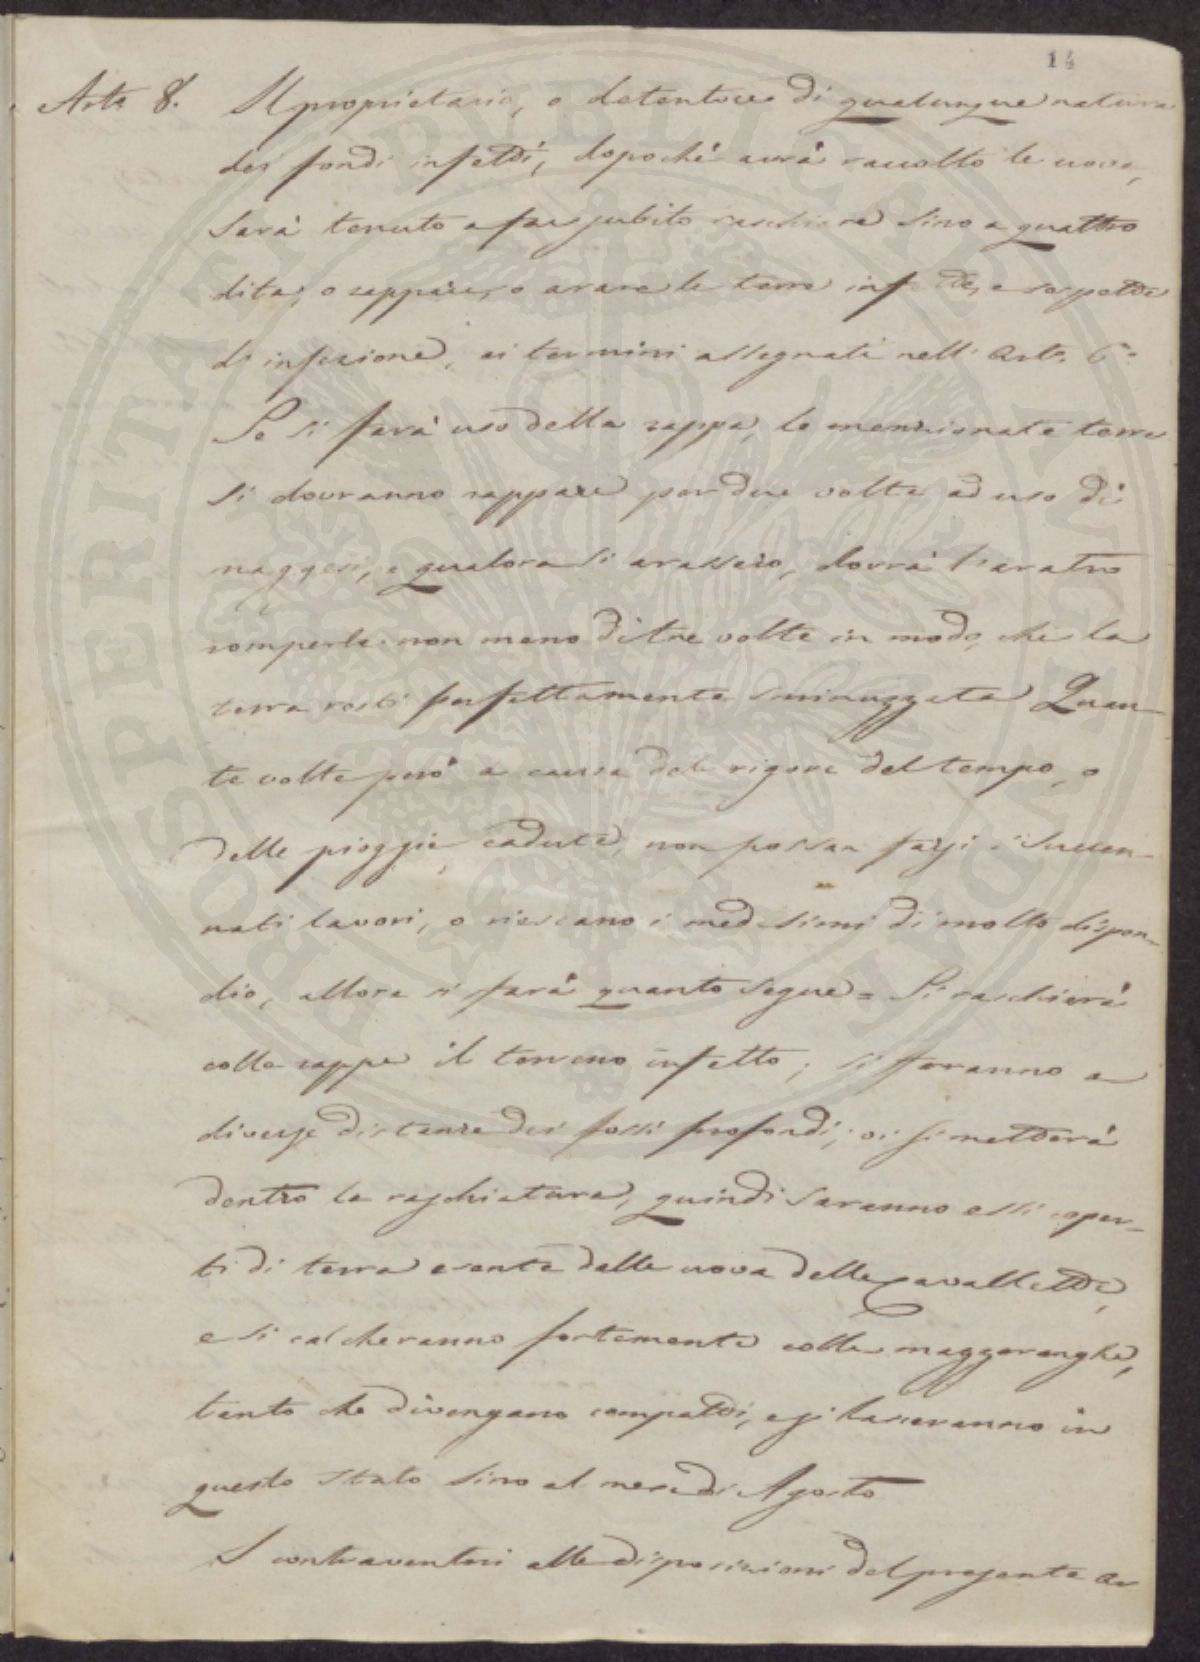 14
Arto 8. Il proprietario, o detentore di qualunque natura
dei fondi infetti, dopochè avrà raccolto le uova,
sarà tenuto a far subito raschiare sino a quattro
dita, o zappare, o arare le terre infette, e sospette
di infezione, ai termini assegnati nell'Arto 6º
Se si farà uso della zappa, le menzionate terre
si dovranno zappare per due volte ad uso di
maggesi, e qualora si arassero, dovrà l'aratro
romperle non meno di tre volte in modo, che la
terra resti perfettamente sminuzzata Quan-
te volte però a causa del rigore del tempo, o
delle pioggie cadute, non possan farsi i succen-
nati lavori, o riescano i medesimi di molto dispen-
dio, allora si farà quanto segue = Si raschierà
colla zappa il terreno infetto; si faranno a
diverse distanze dei fossi profondi; vi si metterà
dentro la raschiatura, quindi saranno essi coper-
ti di terra esente dalle uova delle Cavallette,
e si calcheranno fortemente colle mazzeranghe,
tanto che divengano compatti, e si lasceranno in
questo stato sino al mese di Agosto
I contraventori alle disposizioni del presente ar
PROSPERITATI PUBLICAE AUGENDAE